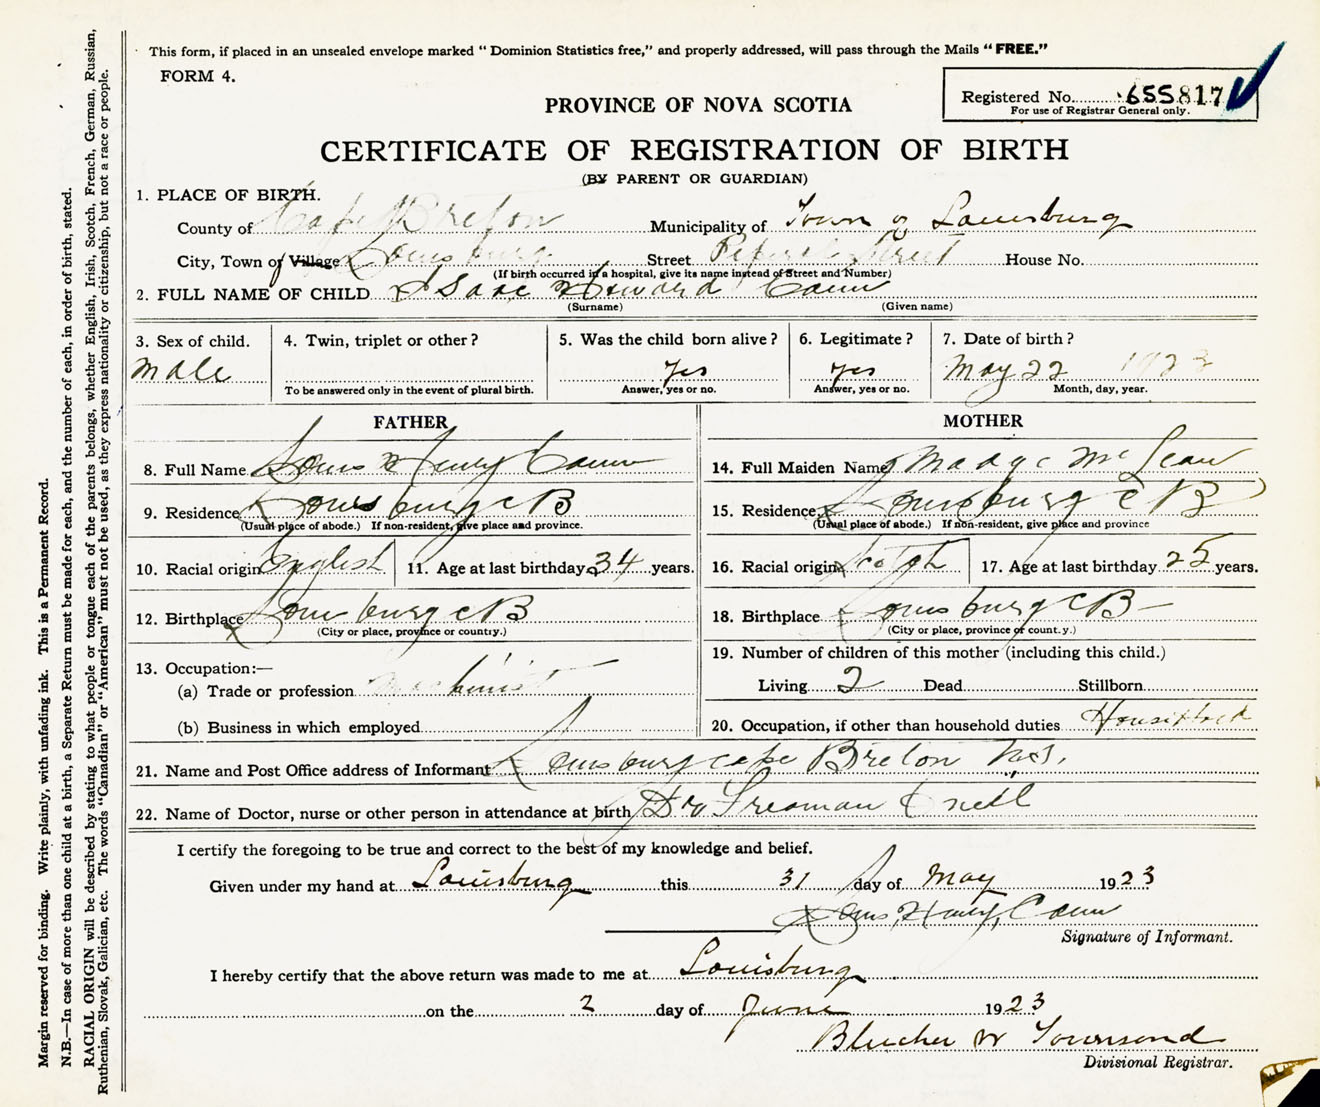 This form, if placed in an unsealed envelope marked "Dominion Statistics free," and properly addressed, will pass through the Mails "FREE."
FORM 4.
Registered No. 655817
For use of Registrar General only.
PROVINCE OF NOVA SCOTIA
CERTIFICATE OF REGISTRATION OF BIRTH
(BY PARENT OR GUARDIAN)
1. PLACE OF BIRTH.
County of Cape Breton Municipality of Town of Louisburg
City, Town or Village Louisburg Street Street House No.
(If birth occurred in a hospital, give its name instead of Street and Number)
2. FULL NAME OF CHILD Isaac Howard Cann
(Surname) (Given name)
3. Sex of child. 4. Twin, triplet or other? 5. Was the child born alive? 6. Legitimate? 7. Date of birth?
male yes yes May 22 1923
To be answered only in the event of plural birth. Answer, yes or no. Answer, yes or no. Month, day, year.
FATHER
8. Full Name Louis Henry Cann
9. Residence Louisburg C B
(Usual place of abode.) If non-resident, give place and province.
10. Racial origin English 11. Age at last birthday 34 years.
12. Birthplace Louisburg C B
(City or place, province or country.)
13. Occupation:—
(a) Trade or profession machinist
(b) Business in which employed
MOTHER
14. Full Maiden Name Madge McLean
15. Residence Louisburg C B
(Usual place of abode.) If non-resident, give place and province
16. Racial origin Scotch 17. Age at last birthday 25 years.
18. Birthplace Louisburg C B
(City or place, province or count.y.)
19. Number of children of this mother (including this child.)
Living 2 Dead Stillborn
20. Occupation, if other than household duties
21. Name and Post Office address of Informant Louisburg Cape Breton N.S.
22. Name of Doctor, nurse or other person in attendance at birth Dr Freeman O'Neil
I certify the foregoing to be true and correct to the best of my knowledge and belief.
Given under my hand at Louisburg this 31 day of May 1923
Louis Henry Cann
Signature of Informant.
I hereby certify that the above return was made to me at Louisburg
on the 2 day of June 1923
Blucher W Townsend
Divisional Registrar.
Margin reserved for binding. Write plainly, with unfading ink. This is a Permanent Record.
N.B.—In case of more than one child at a birth, a Separate Return must be made for each, and the number of each, in order of birth, stated.
RACIAL ORIGIN will be described by stating to what people or tongue each of the parents belongs, whether English, Irish, Scotch, French, German, Russian,
Ruthenian, Slovak, Galician, etc. The words "Canadian" or "American" must not be used, as they express nationality or citizenship, but not a race or people.